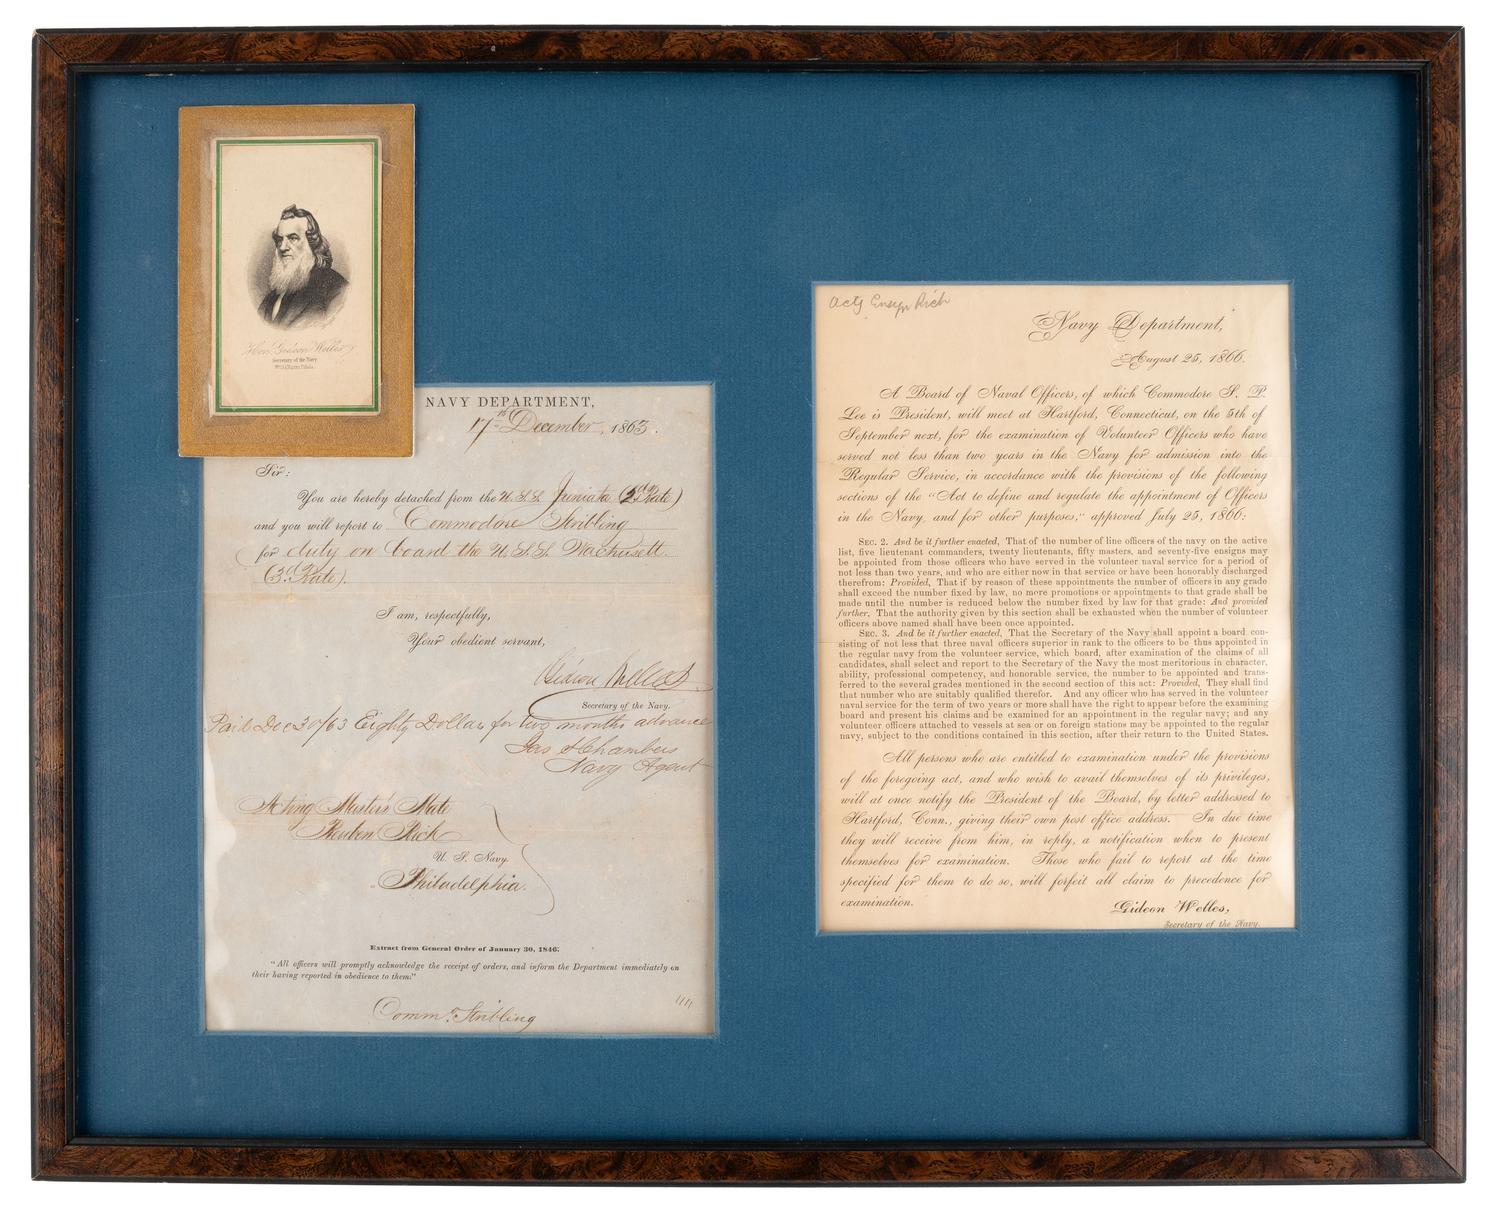 Hon. Gideon Welles
Secretary of the Navy
NAVY DEPARTMENT,
17th December, 1863.
Sir:
You are hereby detached from the U.S.S. Juniata (2d Rate)
and you will report to Commodore Stribling
for duty on board the U.S.S. Wachusett.
(3d Rate).
I am, respectfully,
Your obedient servant,
Gideon Welles
Secretary of the Navy.
Paid Dec 30/63 Eighty Dollars for two months advance
Jas S Chambers
Navy Agent
Acting Master's Mate
Reuben Rich
U. S. Navy.
Philadelphia.
Extract from General Order of January 30, 1846.
"All officers will promptly acknowledge the receipt of orders, and inform the Department immediately on
their having reported in obedience to them."
Commr. Stribling
Actg Ensign Rich
Navy Department,
August 25, 1866.
A Board of Naval Officers, of which Commodore S. P.
Lee is President, will meet at Hartford, Connecticut, on the 5th of
September next, for the examination of Volunteer Officers who have
served not less than two years in the Navy for admission into the
Regular Service, in accordance with the provisions of the following
sections of the "Act to define and regulate the appointment of Officers
in the Navy, and for other purposes," approved July 25, 1866:
SEC. 2. And be it further enacted, That of the number of line officers of the navy on the active
list, five lieutenant commanders, twenty lieutenants, fifty masters, and seventy-five ensigns may
be appointed from those officers who have served in the volunteer naval service for a period of
not less than two years, and who are either now in that service or have been honorably discharged
therefrom: Provided, That if by reason of these appointments the number of officers in any grade
shall exceed the number fixed by law, no more promotions or appointments to that grade shall be
made until the number is reduced below the number fixed by law for that grade: And provided
further, That the authority given by this section shall be exhausted when the number of volunteer
officers above named shall have been once appointed.
SEC. 3. And be it further enacted, That the Secretary of the Navy shall appoint a board con-
sisting of not less that three naval officers superior in rank to the officers to be thus appointed in
the regular navy from the volunteer service, which board, after examination of the claims of all
candidates, shall select and report to the Secretary of the Navy the most meritorious in character,
ability, professional competency, and honorable service, the number to be appointed and trans-
ferred to the several grades mentioned in the second section of this act: Provided, They shall find
that number who are suitably qualified therefor. And any officer who has served in the volunteer
naval service for the term of two years or more shall have the right to appear before the examining
board and present his claims and be examined for an appointment in the regular navy; and any
volunteer officers attached to vessels at sea or on foreign stations may be appointed to the regular
navy, subject to the conditions contained in this section, after their return to the United States.
All persons who are entitled to examination under the provisions
of the foregoing act, and who wish to avail themselves of its privileges,
will at once notify the President of the Board, by letter addressed to
Hartford, Conn., giving their own post office address. In due time
they will receive from him, in reply, a notification when to present
themselves for examination. Those who fail to report at the time
specified for them to do so, will forfeit all claim to precedence for
examination.
Gideon Welles,
Secretary of the Navy.